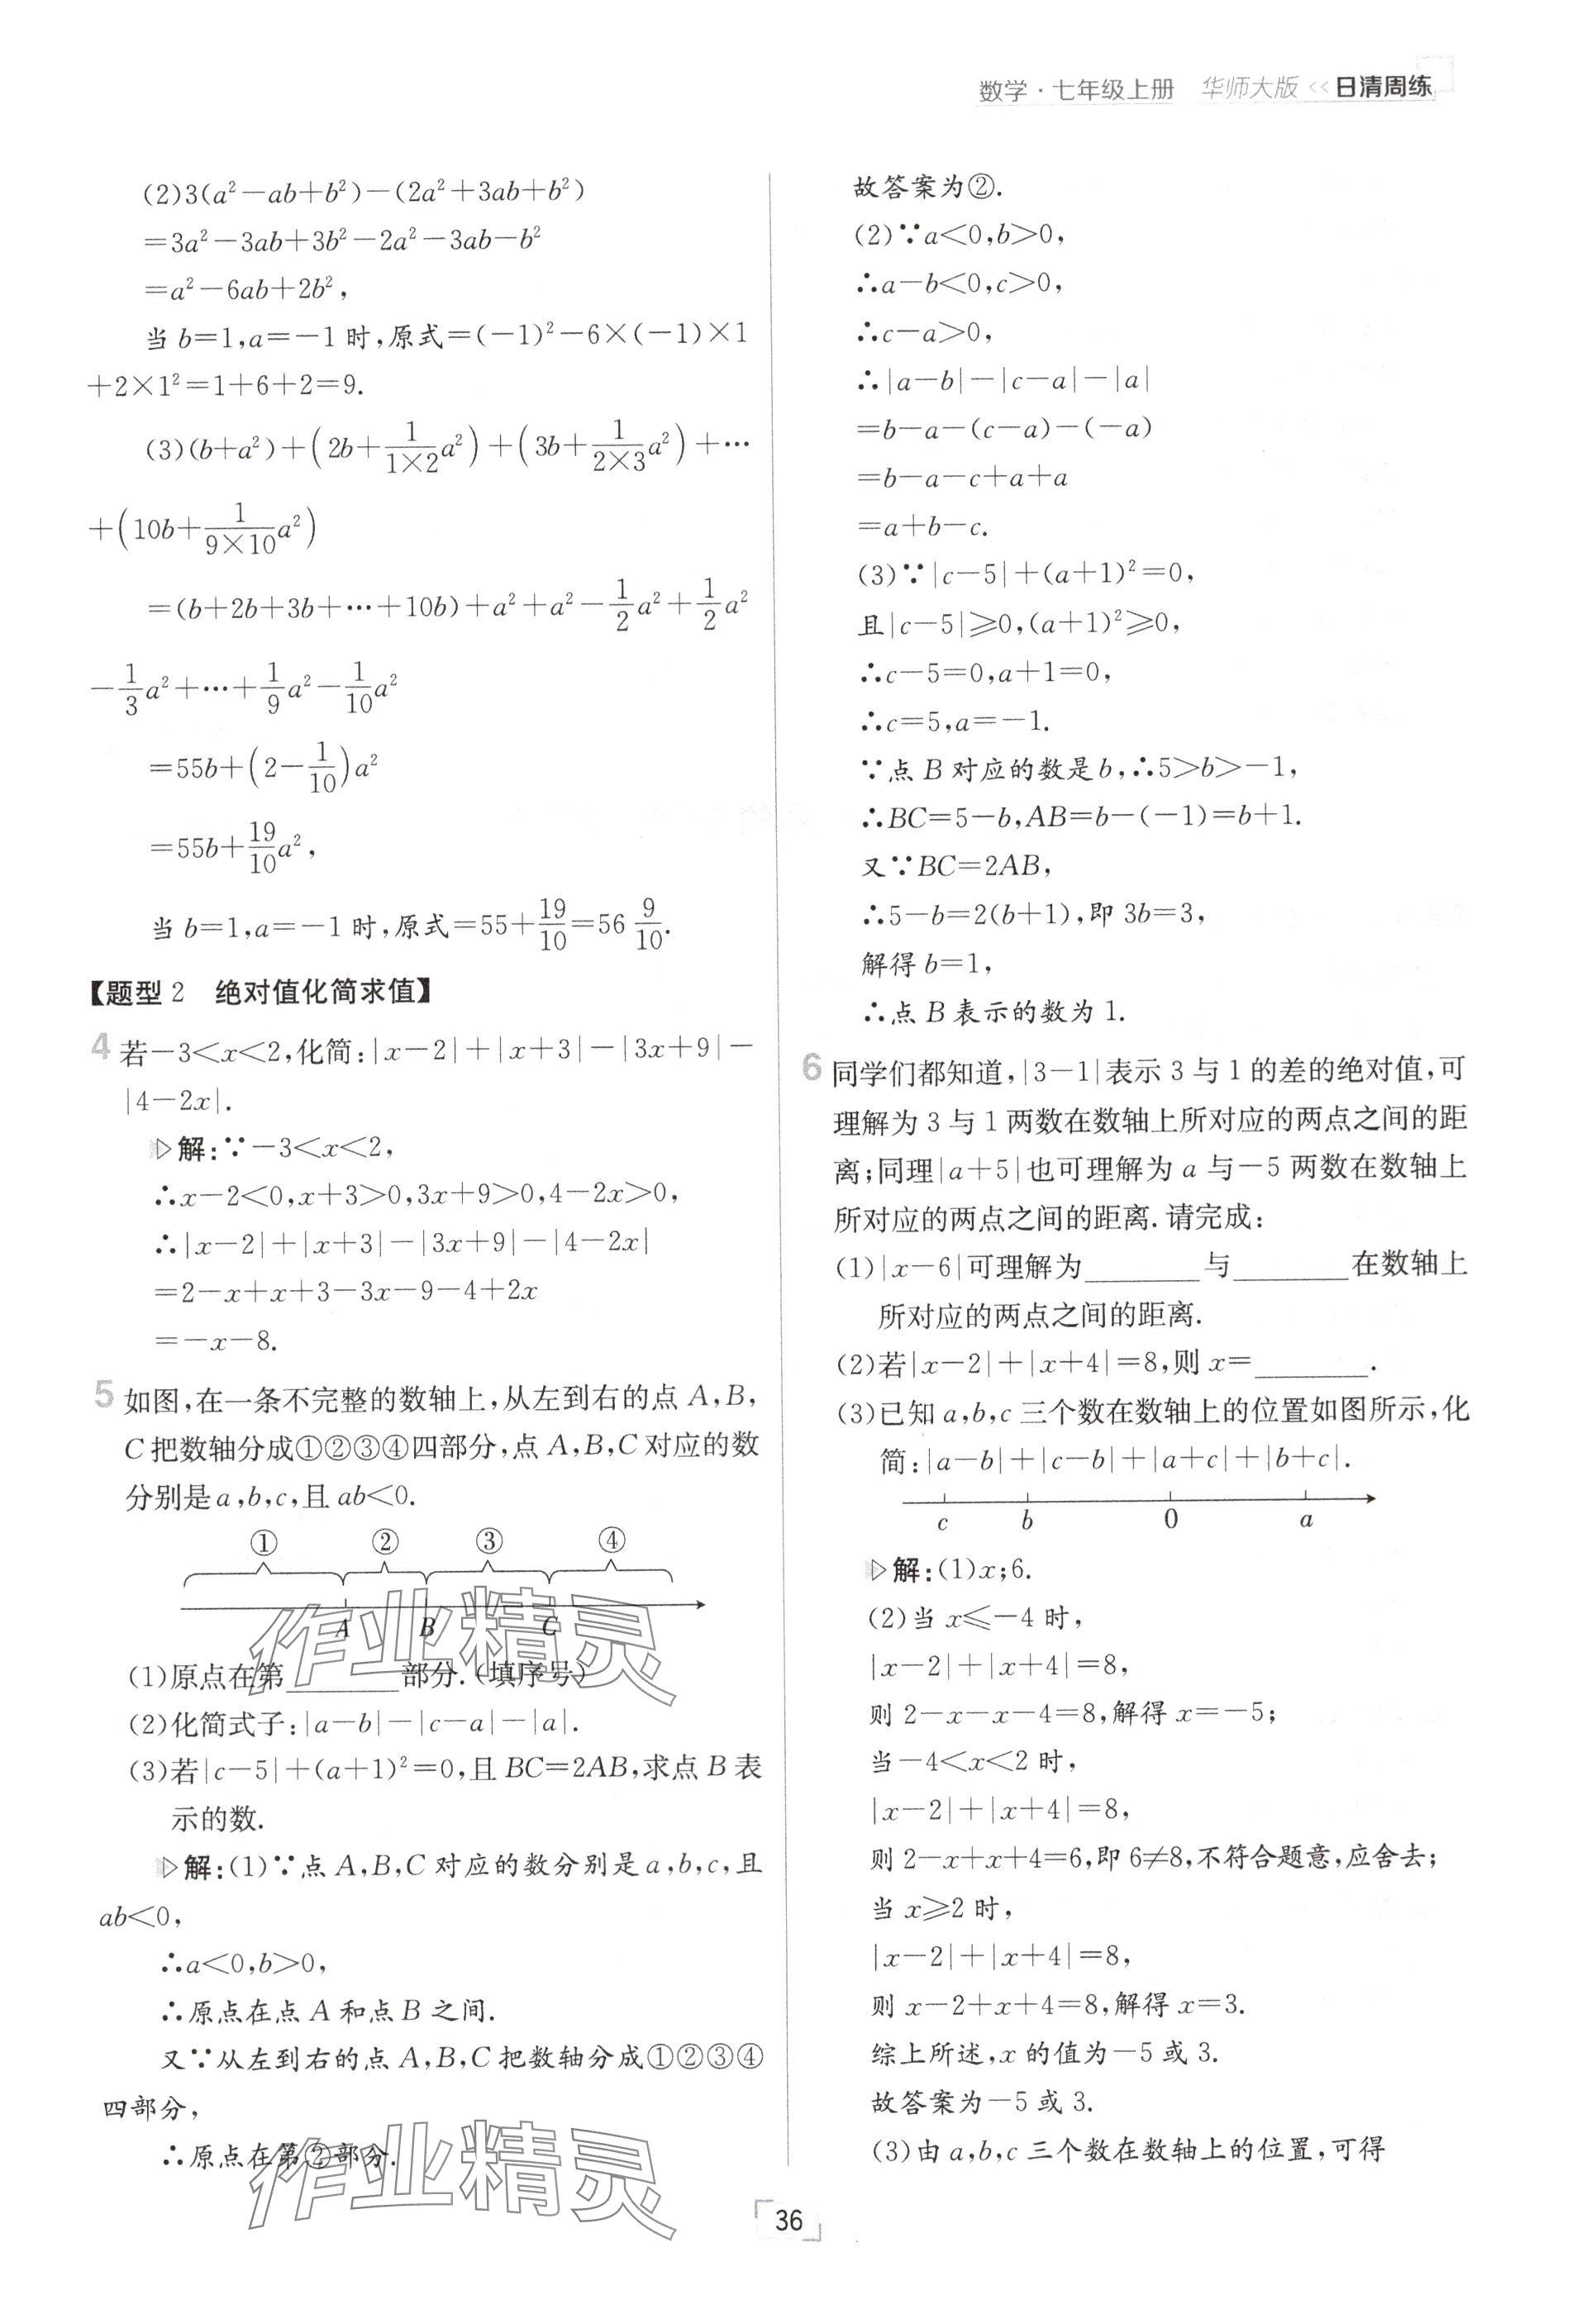 数学·七年级上册 华师大版<<日清周练
(2)3(a²-ab+b²)-(2a²+3ab+b²)
=3a²-3ab+3b²-2a²-3ab-b²
=a²-6ab+2b²,
当 b=1,a=-1 时,原式=(-1)²-6×(-1)×1
+2×1²=1+6+2=9.
(3)(b+a²)+(2b+\frac{1}{1×2}a²)+(3b+\frac{1}{2×3}a²)+…
+(10b+\frac{1}{9×10}a²)
=(b+2b+3b+…+10b)+a²+a²-\frac{1}{2}a²+\frac{1}{2}a²
-\frac{1}{3}a²+…+\frac{1}{9}a²-\frac{1}{10}a²
=55b+(2-\frac{1}{10})a²
=55b+\frac{19}{10}a²,
当 b=1,a=-1 时,原式=55+\frac{19}{10}=56\frac{9}{10}.
【题型2 绝对值化简求值】
4 若-3<x<2,化简:|x-2|+|x+3|-|3x+9|-
|4-2x|.
解:∵-3<x<2,
∴x-2<0,x+3>0,3x+9>0,4-2x>0,
∴|x-2|+|x+3|-|3x+9|-|4-2x|
=2-x+x+3-3x-9-4+2x
=-x-8.
5 如图,在一条不完整的数轴上,从左到右的点 A,B,
C把数轴分成①②③④四部分,点 A,B,C对应的数
分别是a,b,c,且 ab<0.
① ② ③ ④
A B C
(1)原点在第________部分.(填序号)
(2)化简式子:|a-b|-|c-a|-|a|.
(3)若|c-5|+(a+1)²=0,且 BC=2AB,求点 B 表
示的数.
解:(1)∵点 A,B,C 对应的数分别是 a,b,c,且
ab<0,
∴a<0,b>0,
∴原点在点 A 和点 B 之间.
又∵从左到右的点 A,B,C 把数轴分成①②③④
四部分,
∴原点在第②部分.
故答案为②.
(2)∵a<0,b>0,
∴a-b<0,c>0,
∴c-a>0,
∴|a-b|-|c-a|-|a|
=b-a-(c-a)-(-a)
=b-a-c+a+a
=a+b-c.
(3)∵|c-5|+(a+1)²=0,
且|c-5|≥0,(a+1)²≥0,
∴c-5=0,a+1=0,
∴c=5,a=-1.
∵点 B 对应的数是 b,∴5>b>-1,
∴BC=5-b,AB=b-(-1)=b+1.
又∵BC=2AB,
∴5-b=2(b+1),即 3b=3,
解得 b=1,
∴点 B 表示的数为 1.
6 同学们都知道,|3-1|表示 3 与 1 的差的绝对值,可
理解为 3 与 1 两数在数轴上所对应的两点之间的距
离;同理|a+5|也可理解为 a 与-5 两数在数轴上
所对应的两点之间的距离.请完成:
(1)|x-6|可理解为________与________在数轴上
所对应的两点之间的距离.
(2)若|x-2|+|x+4|=8,则 x=________.
(3)已知 a,b,c 三个数在数轴上的位置如图所示,化
简:|a-b|+|c-b|+|a+c|+|b+c|.
c b 0 a
解:(1)x;6.
(2)当 x≤-4 时,
|x-2|+|x+4|=8,
则 2-x-x-4=8,解得 x=-5;
当-4<x<2 时,
|x-2|+|x+4|=8,
则 2-x+x+4=6,即 6≠8,不符合题意,应舍去;
当 x≥2 时,
|x-2|+|x+4|=8,
则 x-2+x+4=8,解得 x=3.
综上所述,x 的值为-5 或 3.
故答案为-5 或 3.
(3)由 a,b,c 三个数在数轴上的位置,可得
36
作业精灵
作业精灵